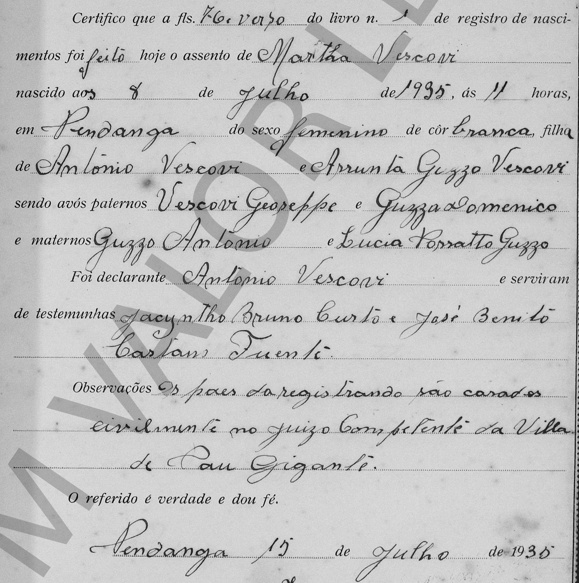 Certifico que a fls. 76 e verso do livro n. 1 de registro de nasci-
mentos foi feito hoje o assento de Martha Vescovi
nascido aos 8 de Julho de 1935, ás 11 horas,
em Pendanga do sexo femenino de côr branca, filha
de Antônio Vescovi e Arrunta Guzzo Vescovi
sendo avós paternos Vescovi Geoseppe e Guzza Domenico
e maternos Guzzo Antônio e Lucia Possatto Guzzo
Foi declarante Antônio Vescovi e serviram
de testemunhas Jacyntho Bruno Curto e José Benito
Fuente.
Observações Os paes da registrando são casados
civilmente no Juizo Competente da Villa
de Pau Gigante.
O referido é verdade e dou fé.
Pendanga 15 de Julho de 1935
M VALOR LE